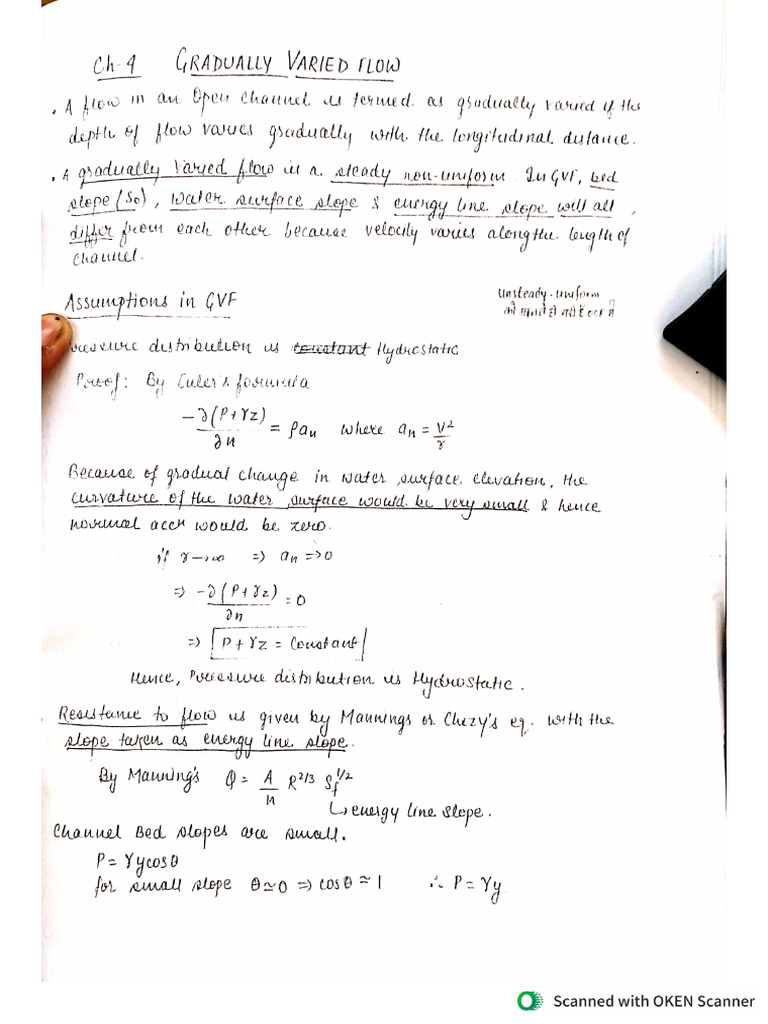 Ch-4 GRADUALLY VARIED FLOW
• A flow in an Open Channel is termed as gradually varied if the
depth of flow varies gradually with the longitudinal distance.
• A gradually varied flow is a steady non-uniform. In GVF, bed
slope (So), water surface slope & energy line slope will all
differ from each other because velocity varies along the length of
channel.
Assumptions in GVF
unsteady-uniform
Pressure distribution is constant Hydrostatic
Proof: By Euler's formula
-∂(P+γz)/∂n = ρan where an = V²/r
Because of gradual change in water surface elevation, the
curvature of the water surface would be very small & hence
normal accn would be zero.
if r→∞ => an =>0
=> -∂(P+γz)/∂n = 0
=> P+γz = Constant
Hence, Pressure distribution is Hydrostatic.
Resistance to flow is given by Mannings or Chezy's eq. with the
slope taken as energy line slope.
By Manning's Q = A/n R^2/3 Sf^1/2
↳ energy line slope.
Channel Bed slopes are small.
P = γycosθ
for small slope θ≃0 => cosθ≃1 ∴ P=γy
Scanned with OKEN Scanner